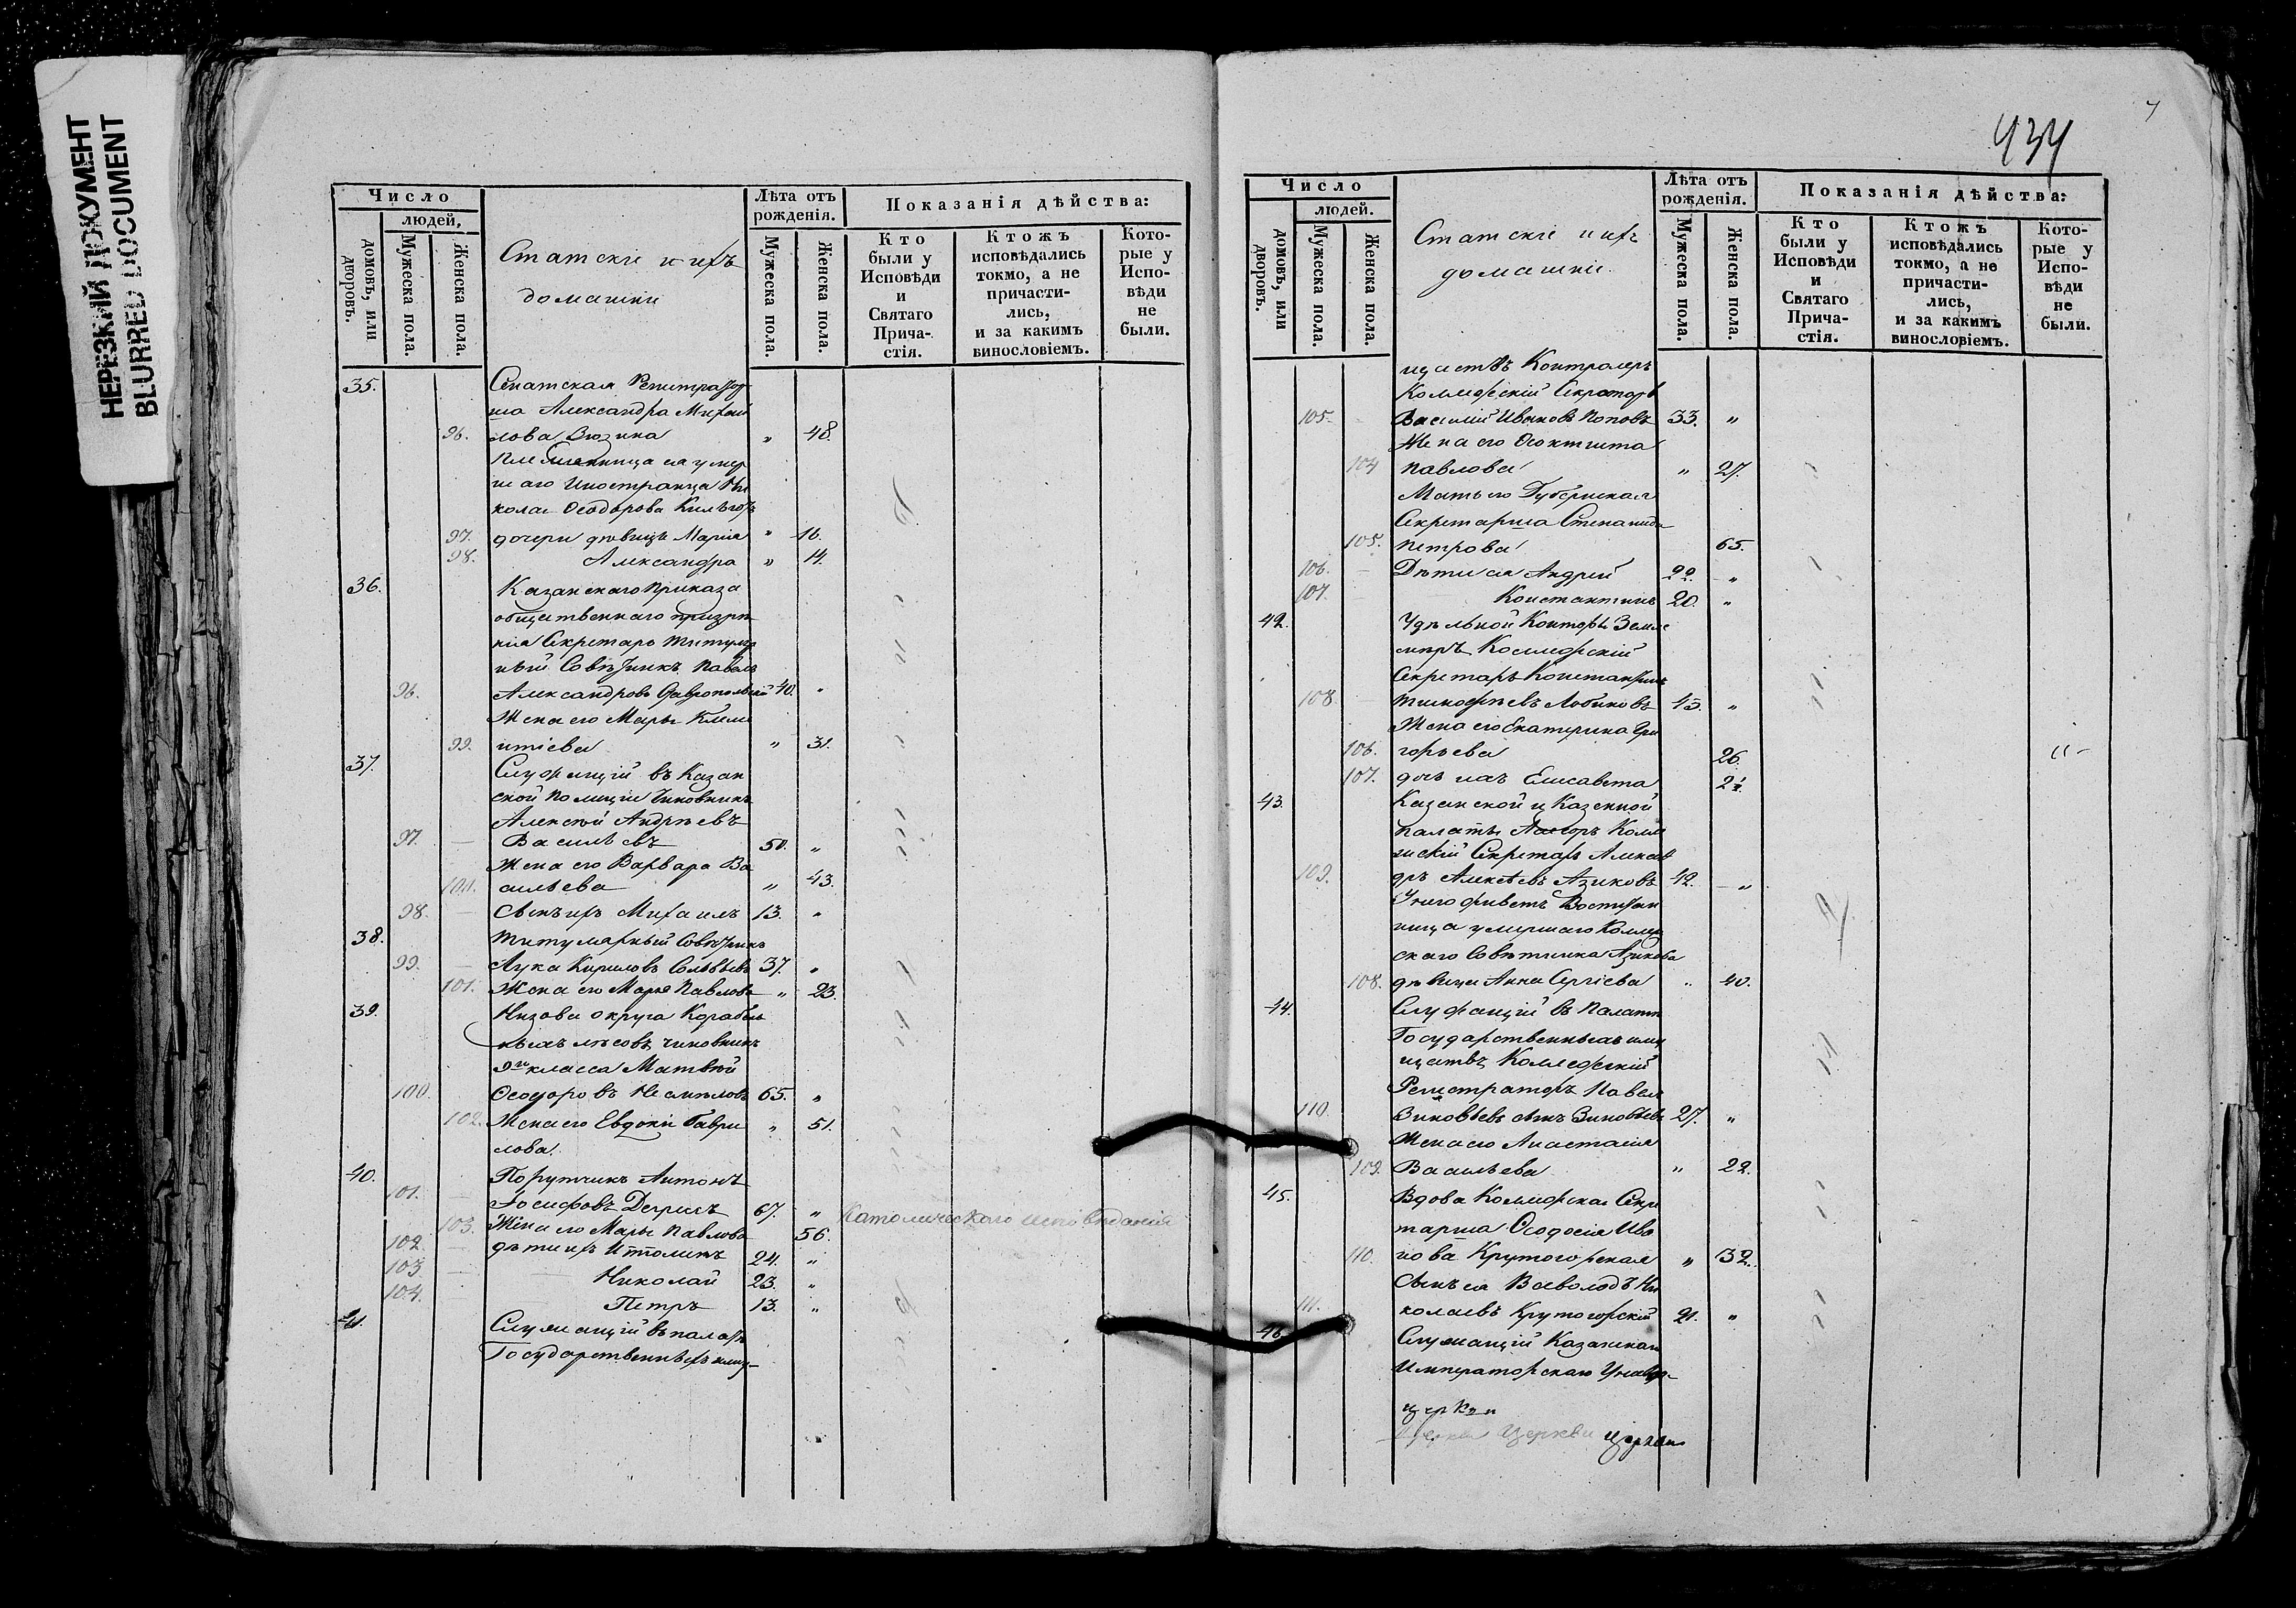 НЕРЕЗКИЙ ДОКУМЕНТ
BLURRED DOCUMENT
Число
людей,
домовъ, или дворовъ.
Мужеска пола.
Женска пола.
Статскіе и ихъ
домашніи
Лѣта отъ рожденія.
Мужеска пола.
Женска пола.
Показанія дѣйства:
Кто были у Исповѣди и Святаго Прича-стія.
Ктожъ исповѣдались токмо, а не причасти-лись, и за какимъ винословіемъ.
Кото-рые у Испо-вѣди не были.
35. Сенатская
Александра Михай
96. лова " 48.
Племянница ея умер
шаго Иностранца Ни
колая Ѳеодорова
97. дочери дѣвицы Марія " 16.
98. Александра " 14.
36. Казанскаго Приказа
общественнаго призрѣ
нія Секретарь Титуляр
ный Совѣтникъ Павелъ
96. Александровъ 40. "
Жена его Марья Клеме
99. нтіева " 31.
37. Служащій въ Казан
ской Полиціи Чиновникъ
Алексѣй Андрѣевъ
97. Васильевъ 50. "
Жена его Варвара Ва
100. сильева " 43.
98. Сынъ ихъ Михаилъ 13. "
38. Титулярный Совѣтникъ
99. Лука Кириловъ Соловьевъ 37. "
101. Жена его Марья Павлова " 23.
39. Низова округа Корабель
ныхъ лѣсовъ чиновникъ
9го класса Матвѣй
100. Ѳеодоровъ 65. "
102. Жена его Евдокія Гаври " 51.
лова.
40. Порутчикъ Антонъ
101. Іосифовъ 67. " Католическаго исповѣданія
103. Жена его Марья Павлова 56.
102. дѣти ихъ 24. "
103 Николай 23. "
104. Петръ 13. "
41. Служащій въ палатѣ
Государственныхъ иму-
7
434
Число
людей.
домовъ, или дворовъ.
Мужеска пола.
Женска пола.
Статскіе и ихъ
домашніи.
Лѣта отъ рожденія.
Мужеска пола.
Женска пола.
Показанія дѣйства:
Кто были у Исповѣди и Святаго Прича-стія.
Ктожъ исповѣдались токмо, а не причасти-лись, и за какимъ винословіемъ.
Кото-рые у Испо-вѣди не были.
ществъ Контролеръ
Коллежскій Секретарь
105. Василій Ивановъ Поповъ 33. "
Жена его Ѳеоктиста
104 Павлова " 27.
Мать его Губернская
Секретарша Степанида
105. Петрова 65.
106. Дѣти ея Андрей 22. "
107. Константинъ 20. "
42. Удѣльной Конторы Земле
мѣръ Коллежскій
Секретарь Константинъ
108. Тимофѣевъ Лобиковъ 45. "
Жена его Екатерина Гри
106. горьева 26.
107. дочь ихъ Елисавета
43. Казанской Казенной
палаты Коллеж
скій Секретарь Алексан
109. дръ Алексѣевъ Азиковъ 42. "
У него живетъ Воспитан
ница умершаго Коллеж
скаго Совѣтника Азикова
108. дѣвица Анна Сергіева " 40.
44. Служащій въ Палатѣ
Государственныхъ иму
ществъ Коллежскій
Регистраторъ Павелъ
110. Зиновьевъ сынъ Зиновьевъ 27. "
Жена его Анастасія
109. Васильева " 22.
45. Вдова Коллежская Секре
тарша Ѳеодосія Ива
110. нова Крутогорская " 32.
Сынъ ея Всеволодъ Ни
111. колаевъ Крутогорскій 21. "
46. Служащій Казанскаго
Императорскаго Универ-
церкви
церкви церкви